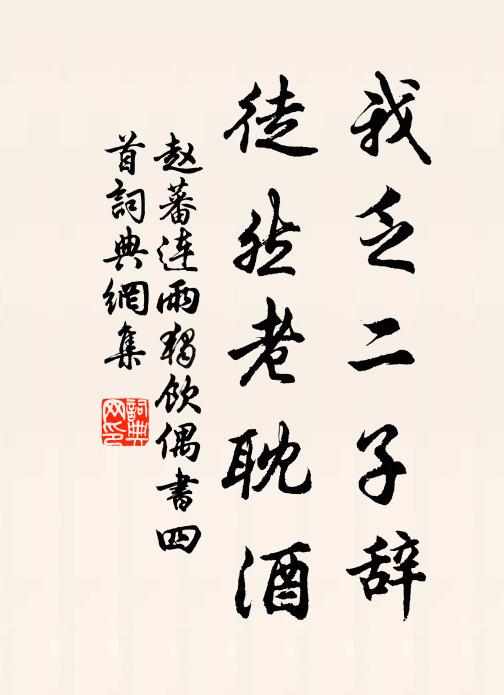 我乏二子辞
徒然老耽酒
赵蕃连雨独饮偶书四
首词典網集
詞典
网印